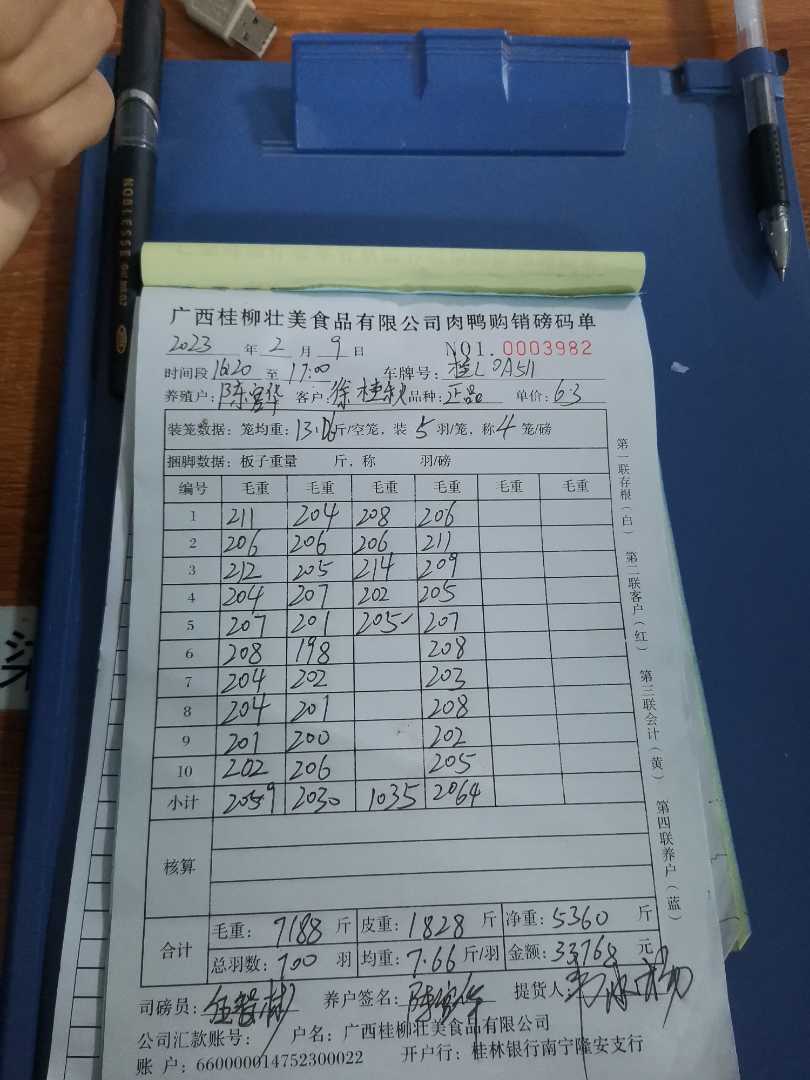 NOBLESSE
广西桂柳壮美食品有限公司肉鸭购销磅码单
2023 年 2 月 9 日 NO1. 0003982
时间段 16:20 至 17:00 车牌号: 桂L 0A511
养殖户: 陈宫华 客户: 徐桂秋 品种: 正品 单价: 6.3
装笼数据: 笼均重: 13.06 斤/空笼, 装 5 羽/笼, 称 4 笼/磅
捆脚数据: 板子重量 斤, 称 羽/磅
编号 毛重 毛重 毛重 毛重 毛重 毛重
1 211 204 208 206
2 206 206 206 211
3 212 205 214 209
4 204 207 202 205
5 207 201 205 207
6 208 198 208
7 204 202 203
8 204 201 208
9 201 200 202
10 202 206 205
小计 2059 2030 1035 2064
核算
合计 毛重: 7188 斤 皮重: 1828 斤 净重: 5360 斤
总羽数: 700 羽 均重: 7.66 斤/羽 金额: 33768 元
司磅员: 养户签名: 陈宫华 提货人:
公司汇款账号: 户名: 广西桂柳壮美食品有限公司
账 户: 660000014752300022 开户行: 桂林银行南宁隆安支行
第一联存根(白) 第二联客户(红) 第三联会计(黄) 第四联养户(蓝)